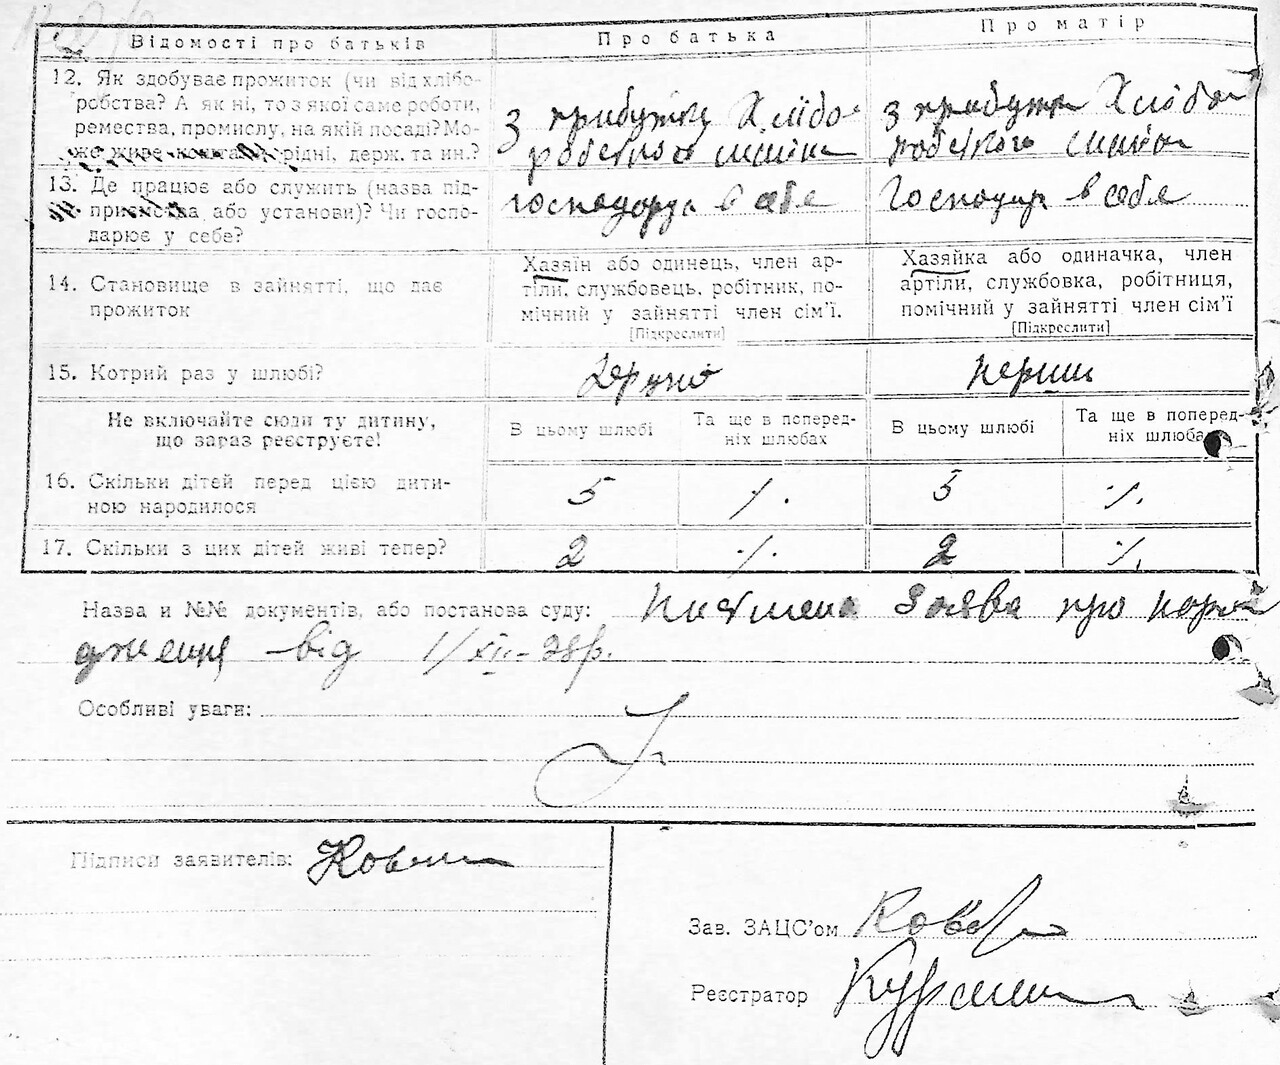 Відомості про батьків
Про батька
Про матір
12. Як здобуває прожиток (чи від хлібо-
робства? А як ні, то з якої саме роботи,
ремества, промислу, на якій посаді? Мо-
же живе коштами рідні, держ. та ин.?
З прибутків Хлібо
робського
З прибутків Хлібо
робського
13. Де працює або служить (назва під-
приємства або установи)? Чи госпо-
дарює у себе?
господарює в себе
Господар в себе
14. Становище в зайнятті, що дає
прожиток
Хазяїн або одинець, член ар-
тіли, службовець, робітник, по-
мічний у зайнятті член сім’ї.
[Підкреслити]
Хазяйка або одиначка, член
артіли, службовка, робітниця,
помічний у зайнятті член сім’ї
[Підкреслити]
15. Котрий раз у шлюбі?
Перший
Не включайте сюди ту дитину,
що зараз реєструєте!
В цьому шлюбі
Та ще в поперед-
ніх шлюбах
В цьому шлюбі
Та ще в поперед-
ніх шлюбах
16. Скільки дітей перед цією дити-
ною народилося
5
·/·
5
·/·
17. Скільки з цих дітей живі тепер?
2
·/·
2
·/·
Назва и №№ документів, або постанова суду: Письмена Заява про наро
дження від 1/XII-28р.
Особливі уваги:
Підписи заявителів:
Зав. ЗАЦС’ом
Реєстратор